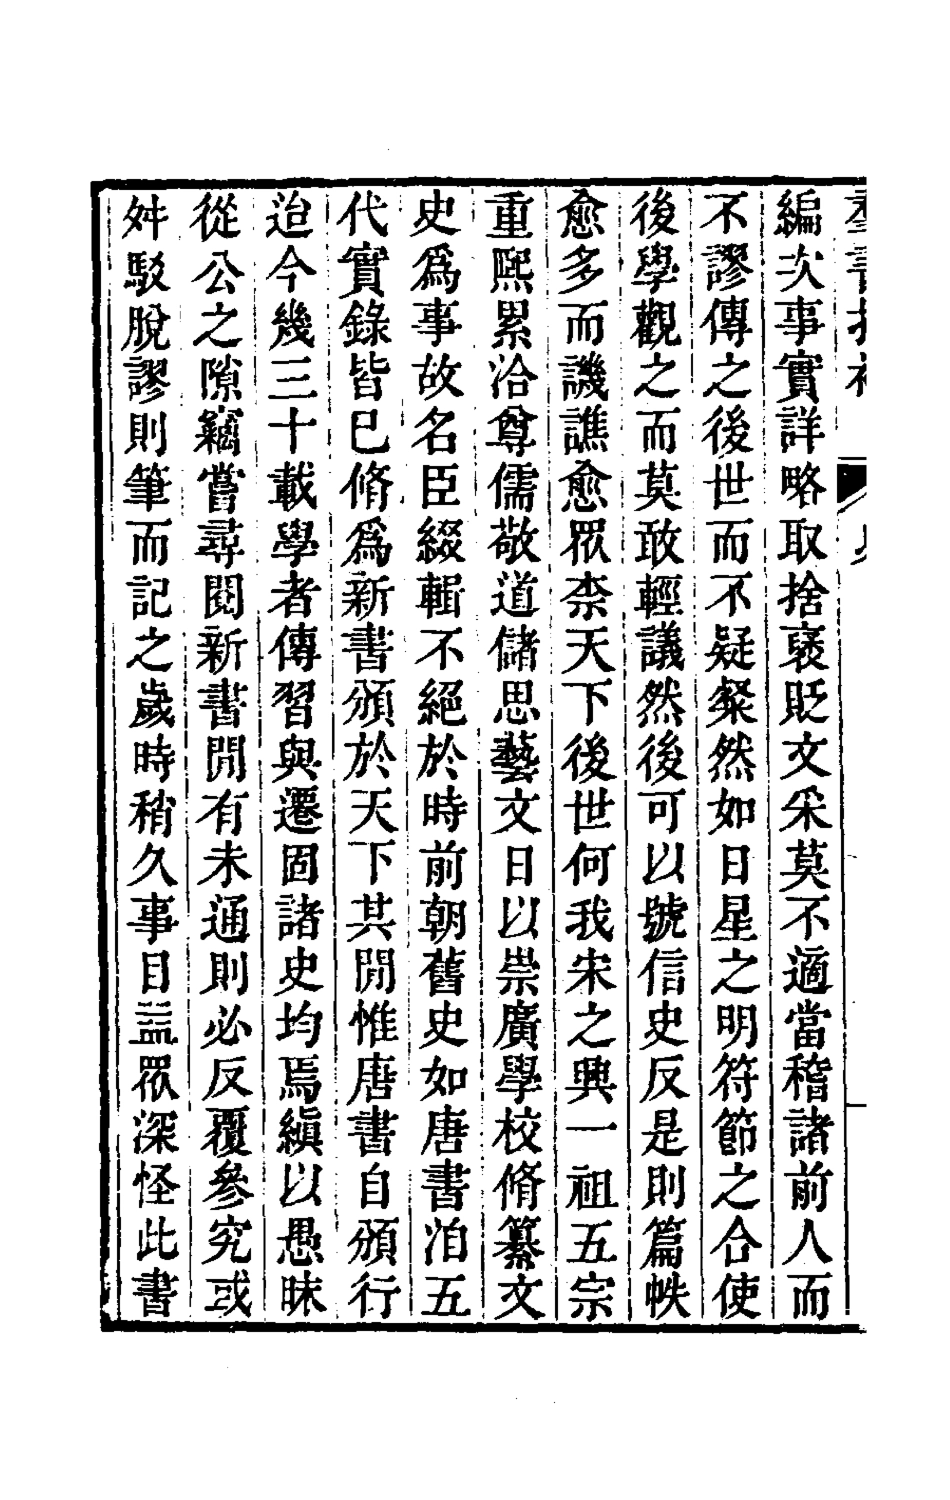 編次事實詳略取捨褒貶文采莫不適當稽諸前人而
不謬傳之後世而不疑粲然如日星之明符節之合使
後學觀之而莫敢輕議然後可以號信史反是則篇帙
愈多而譏譙愈眾柰天下後世何我宋之興一祖五宗
重熙累洽尊儒敬道儲思藝文日以崇廣學校脩纂文
史爲事故名臣綴輯不絕於時前朝舊史如唐書洎五
代實錄皆已脩爲新書頒於天下其閒惟唐書自頒行
迨今幾三十載學者傳習與遷固諸史均焉縝以愚昧
從公之隙竊嘗尋閱新書閒有未通則必反覆參究或
舛駁脫謬則筆而記之歲時稍久事目益眾深怪此書